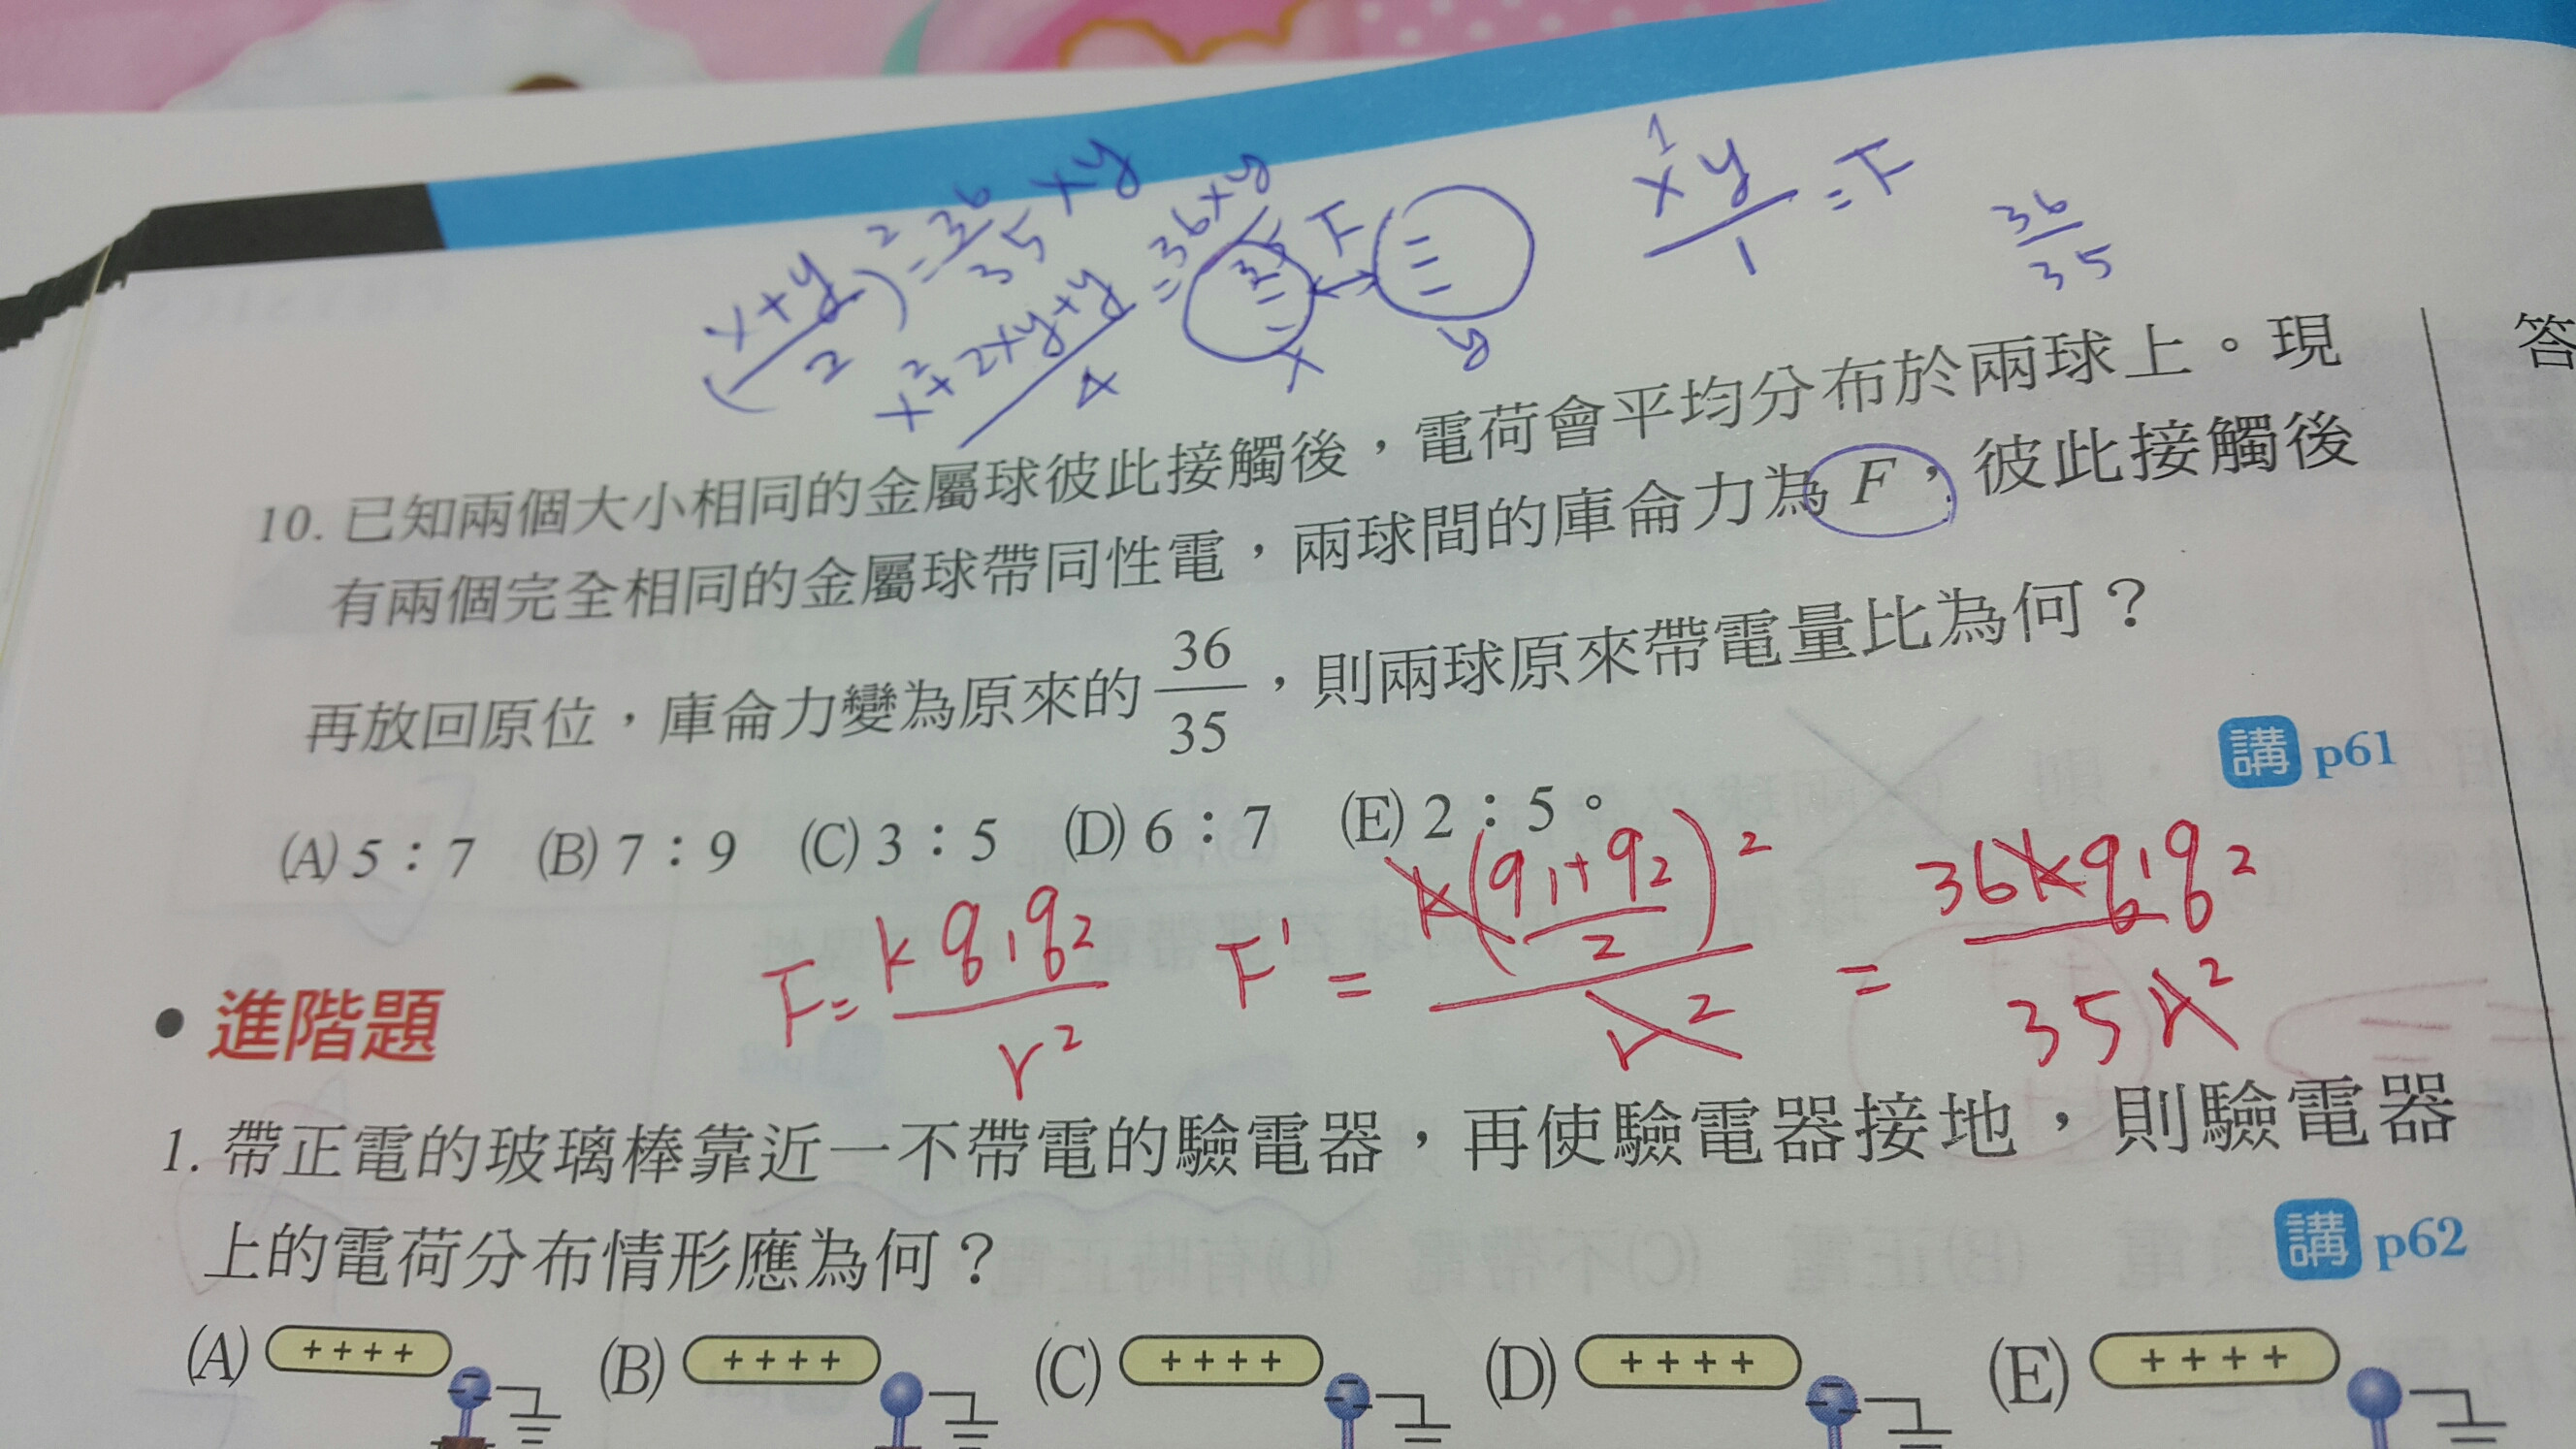 (x+y/2)² = 36/35 xy
x²+2xy+y/4 = 36xy/35
F
x
y
xy/1 = F
1
36/35
答
10. 已知兩個大小相同的金屬球彼此接觸後，電荷會平均分布於兩球上。現
有兩個完全相同的金屬球帶同性電，兩球間的庫侖力為 F，彼此接觸後
再放回原位，庫侖力變為原來的 36/35，則兩球原來帶電量比為何？
講 p61
(A) 5：7 (B) 7：9 (C) 3：5 (D) 6：7 (E) 2：5。
F = kq₁q₂/r² F' = k(q₁+q₂/2)²/r² = 36kq₁q₂/35r²
• 進階題
1. 帶正電的玻璃棒靠近一不帶電的驗電器，再使驗電器接地，則驗電器
上的電荷分布情形應為何？
講 p62
(A) ++++ (B) ++++ (C) ++++ (D) ++++ (E) ++++